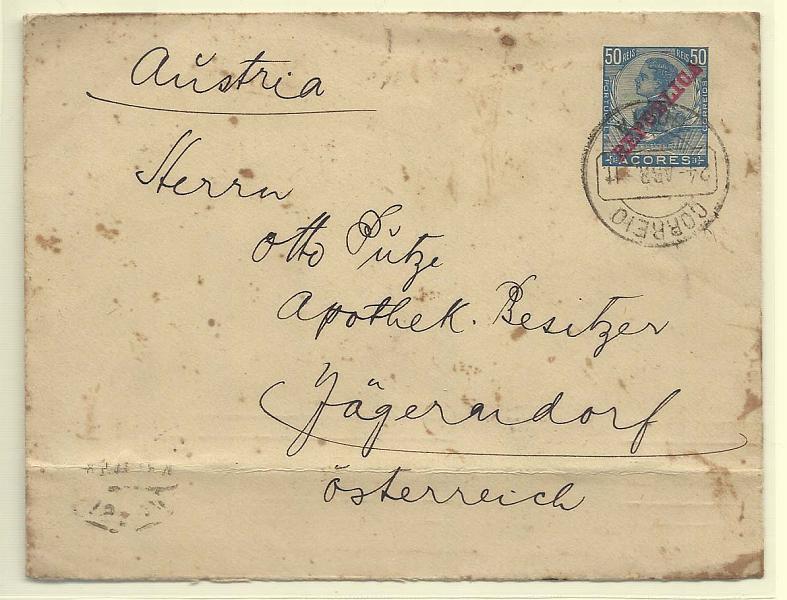 Austria
50 REIS REIS 50
CORREIOS
REPUBLICA
AÇORES
24-ABR 11
CORREIO
Herrn
Otto Pütze
Apothek. Besitzer
Jägerndorf
Österreich